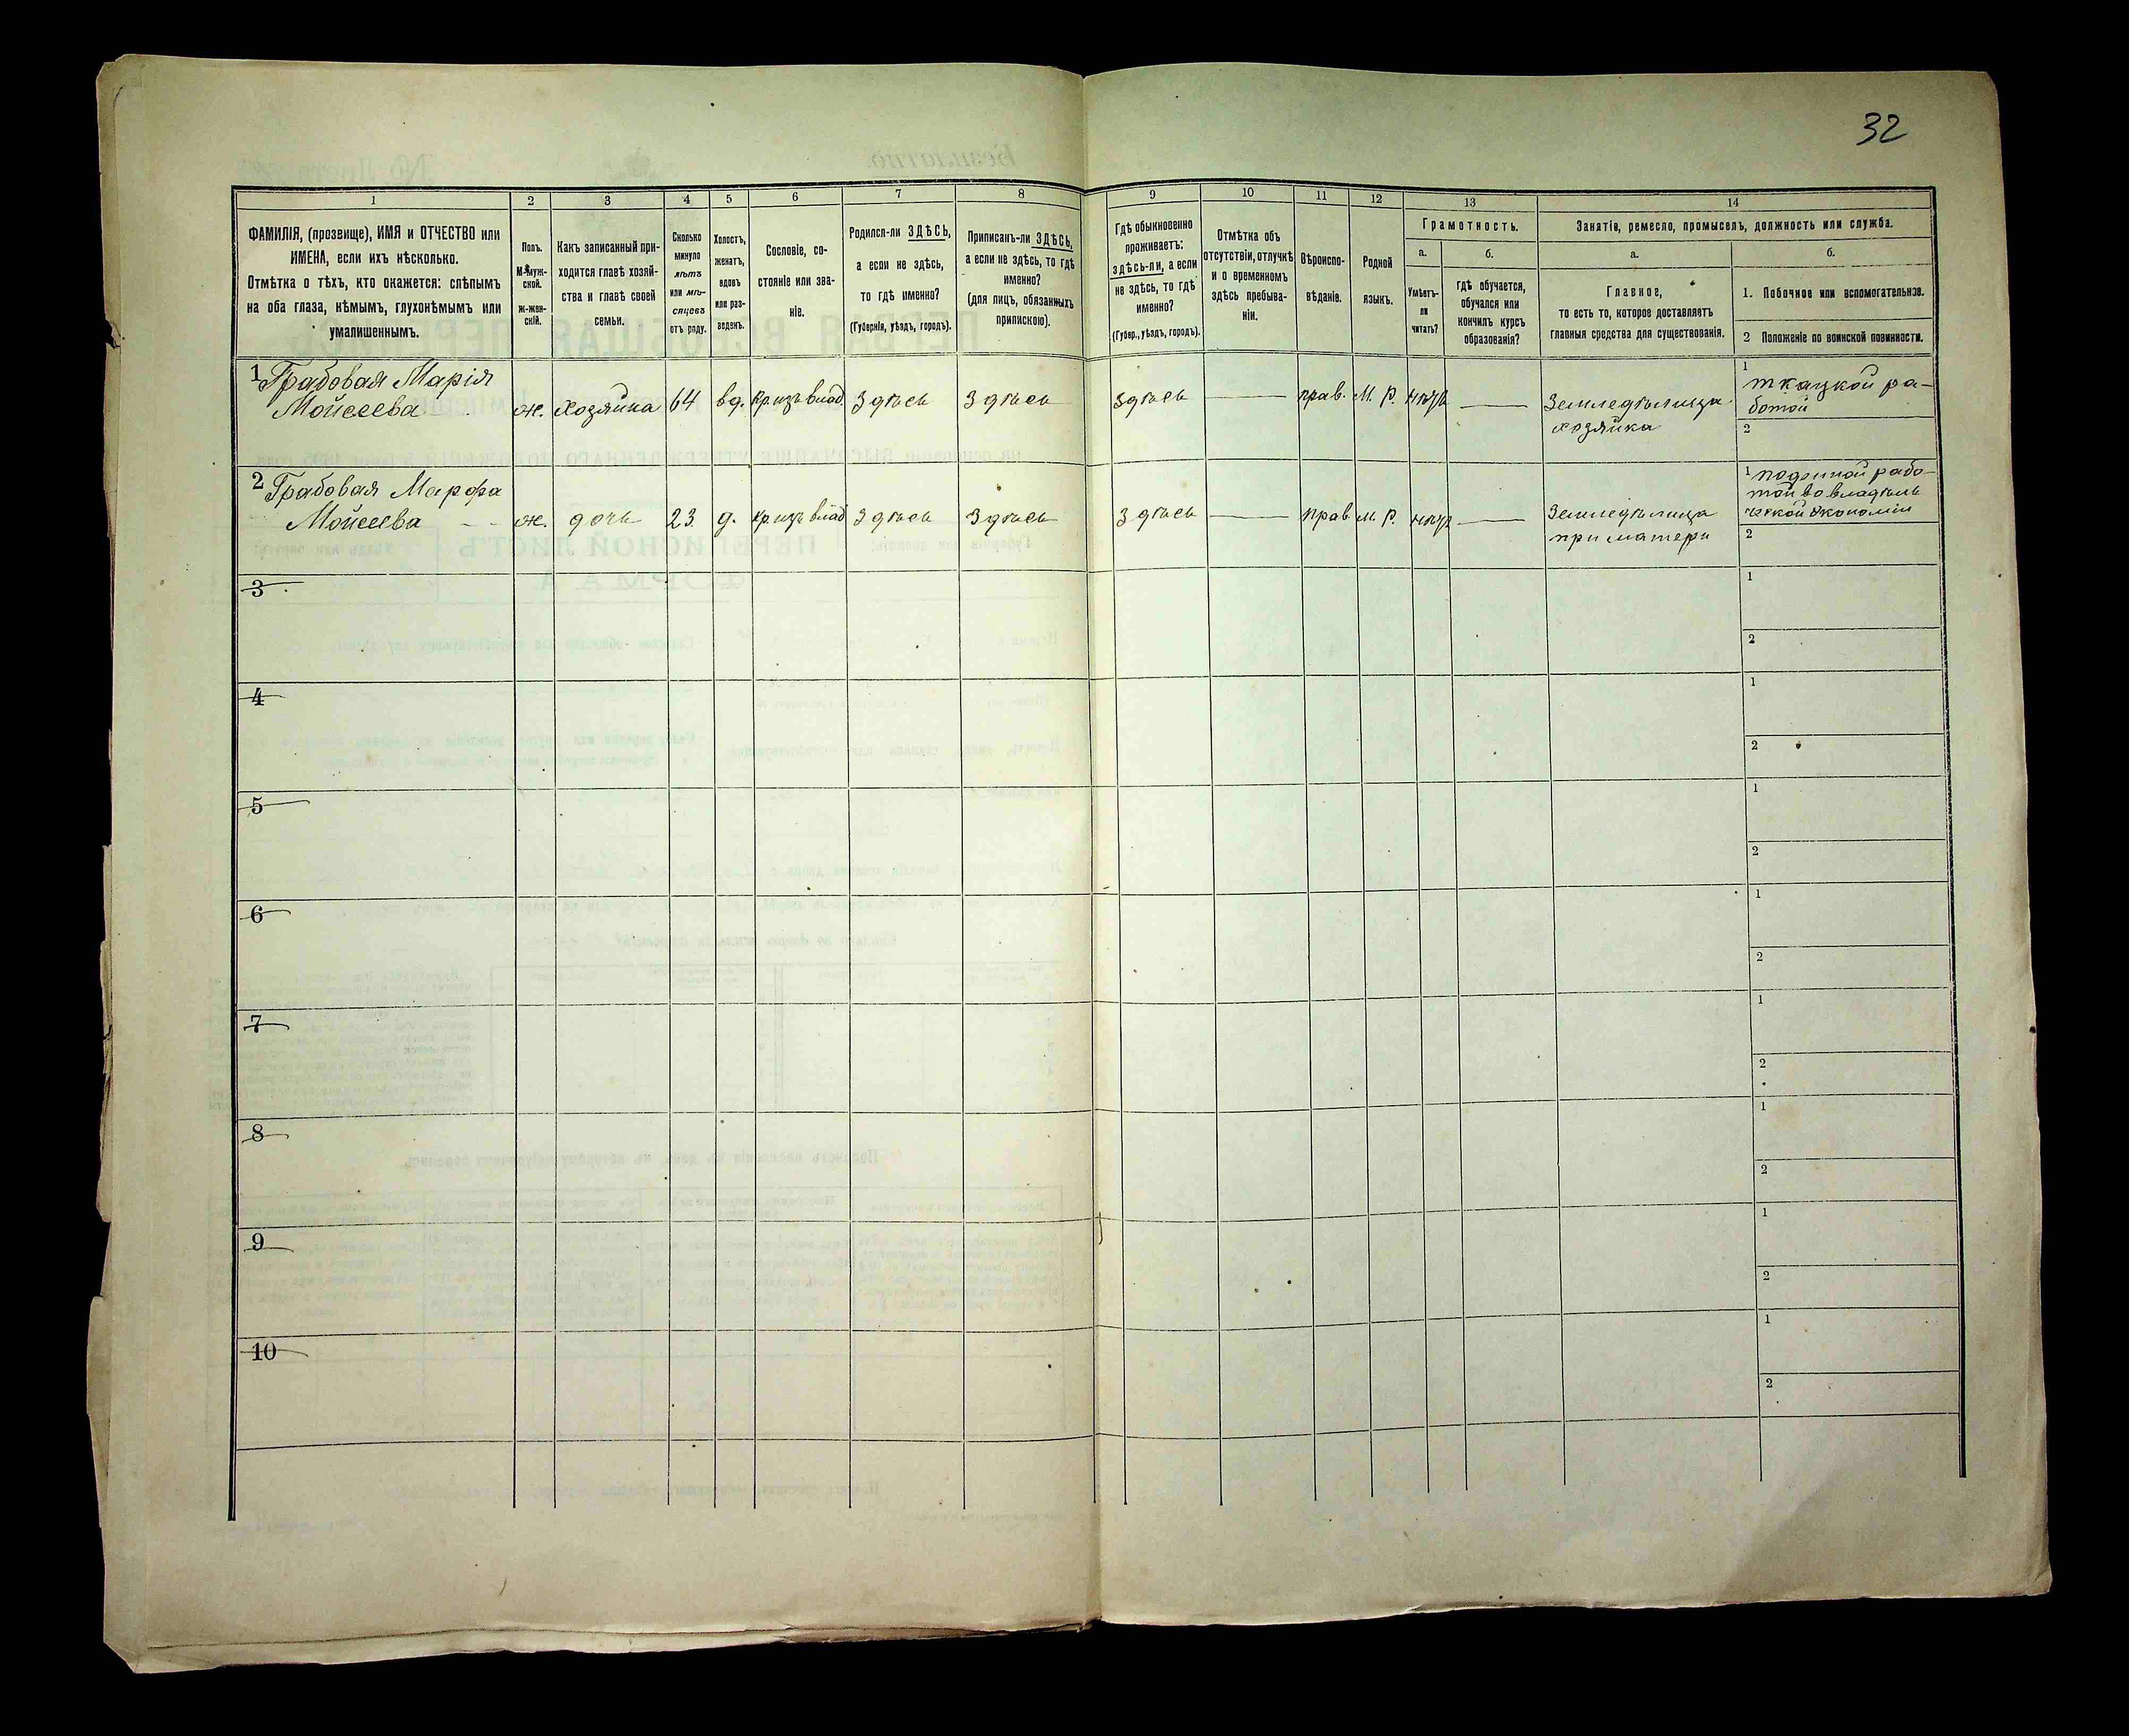 32
1
2
3
4
5
6
7
8
9
10
11
12
13
14
ФАМИЛІЯ, (прозвище), ИМЯ и ОТЧЕСТВО или
ИМЕНА, если ихъ нѣсколько.
Отмѣтка о тѣхъ, кто окажется: слѣпымъ
на оба глаза, нѣмымъ, глухонѣмымъ или
умалишеннымъ.
Полъ.
М-муж-
ской.
ж-жен-
скій.
Какъ записанный при-
ходится главѣ хозяй-
ства и главѣ своей
семьи.
Сколько
минуло
лѣтъ
или мѣ-
сяцевъ
отъ роду.
Холостъ,
женатъ,
вдовъ
или раз-
веденъ.
Сословіе, со-
стояніе или зва-
ніе.
Родился-ли ЗДѢСЬ,
а если не здѣсь,
то гдѣ именно?
(Губернія, уѣздъ, городъ).
Приписанъ-ли ЗДѢСЬ,
а если не здѣсь, то гдѣ
именно?
(для лицъ, обязанныхъ
припискою).
Гдѣ обыкновенно
проживаетъ:
здѣсь-ли, а если
не здѣсь, то гдѣ
именно?
(Губер., уѣздъ, городъ).
Отмѣтка объ
отсутствіи, отлучкѣ
и о временномъ
здѣсь пребыва-
ніи.
Вѣроиспо-
вѣданіе.
Родной
языкъ.
Грамотность.
а.
Умѣетъ-
ли
читать?
б.
гдѣ обучается,
обучался или
кончилъ курсъ
образованія?
Занятіе, ремесло, промыселъ, должность или служба.
а.
Главное,
то есть то, которое доставляетъ
главныя средства для существованія.
б.
1. Побочное или вспомогательное.
2 Положеніе по воинской повинности.
1 Грабовая Марія
Мойсеева
ж.
хозяйка
64
вд.
кр. изъ влад.
здѣсь
здѣсь
здѣсь
—
прав.
М. Р.
нѣтъ
—
Земледѣлица
хозяйка
1
ткацкой ра-
ботой
2
2 Грабовая Марфа
Мойсеева
ж.
дочь
23
д.
кр. изъ влад
здѣсь
здѣсь
здѣсь
—
прав
М. Р.
нѣтъ
—
Земледѣлица
при матери
1 поденной рабо-
той во владѣль
ческой Экономіи
2
3
1
2
4
1
2
5
1
2
6
1
2
7
1
2
8
1
2
9
1
2
10
1
2